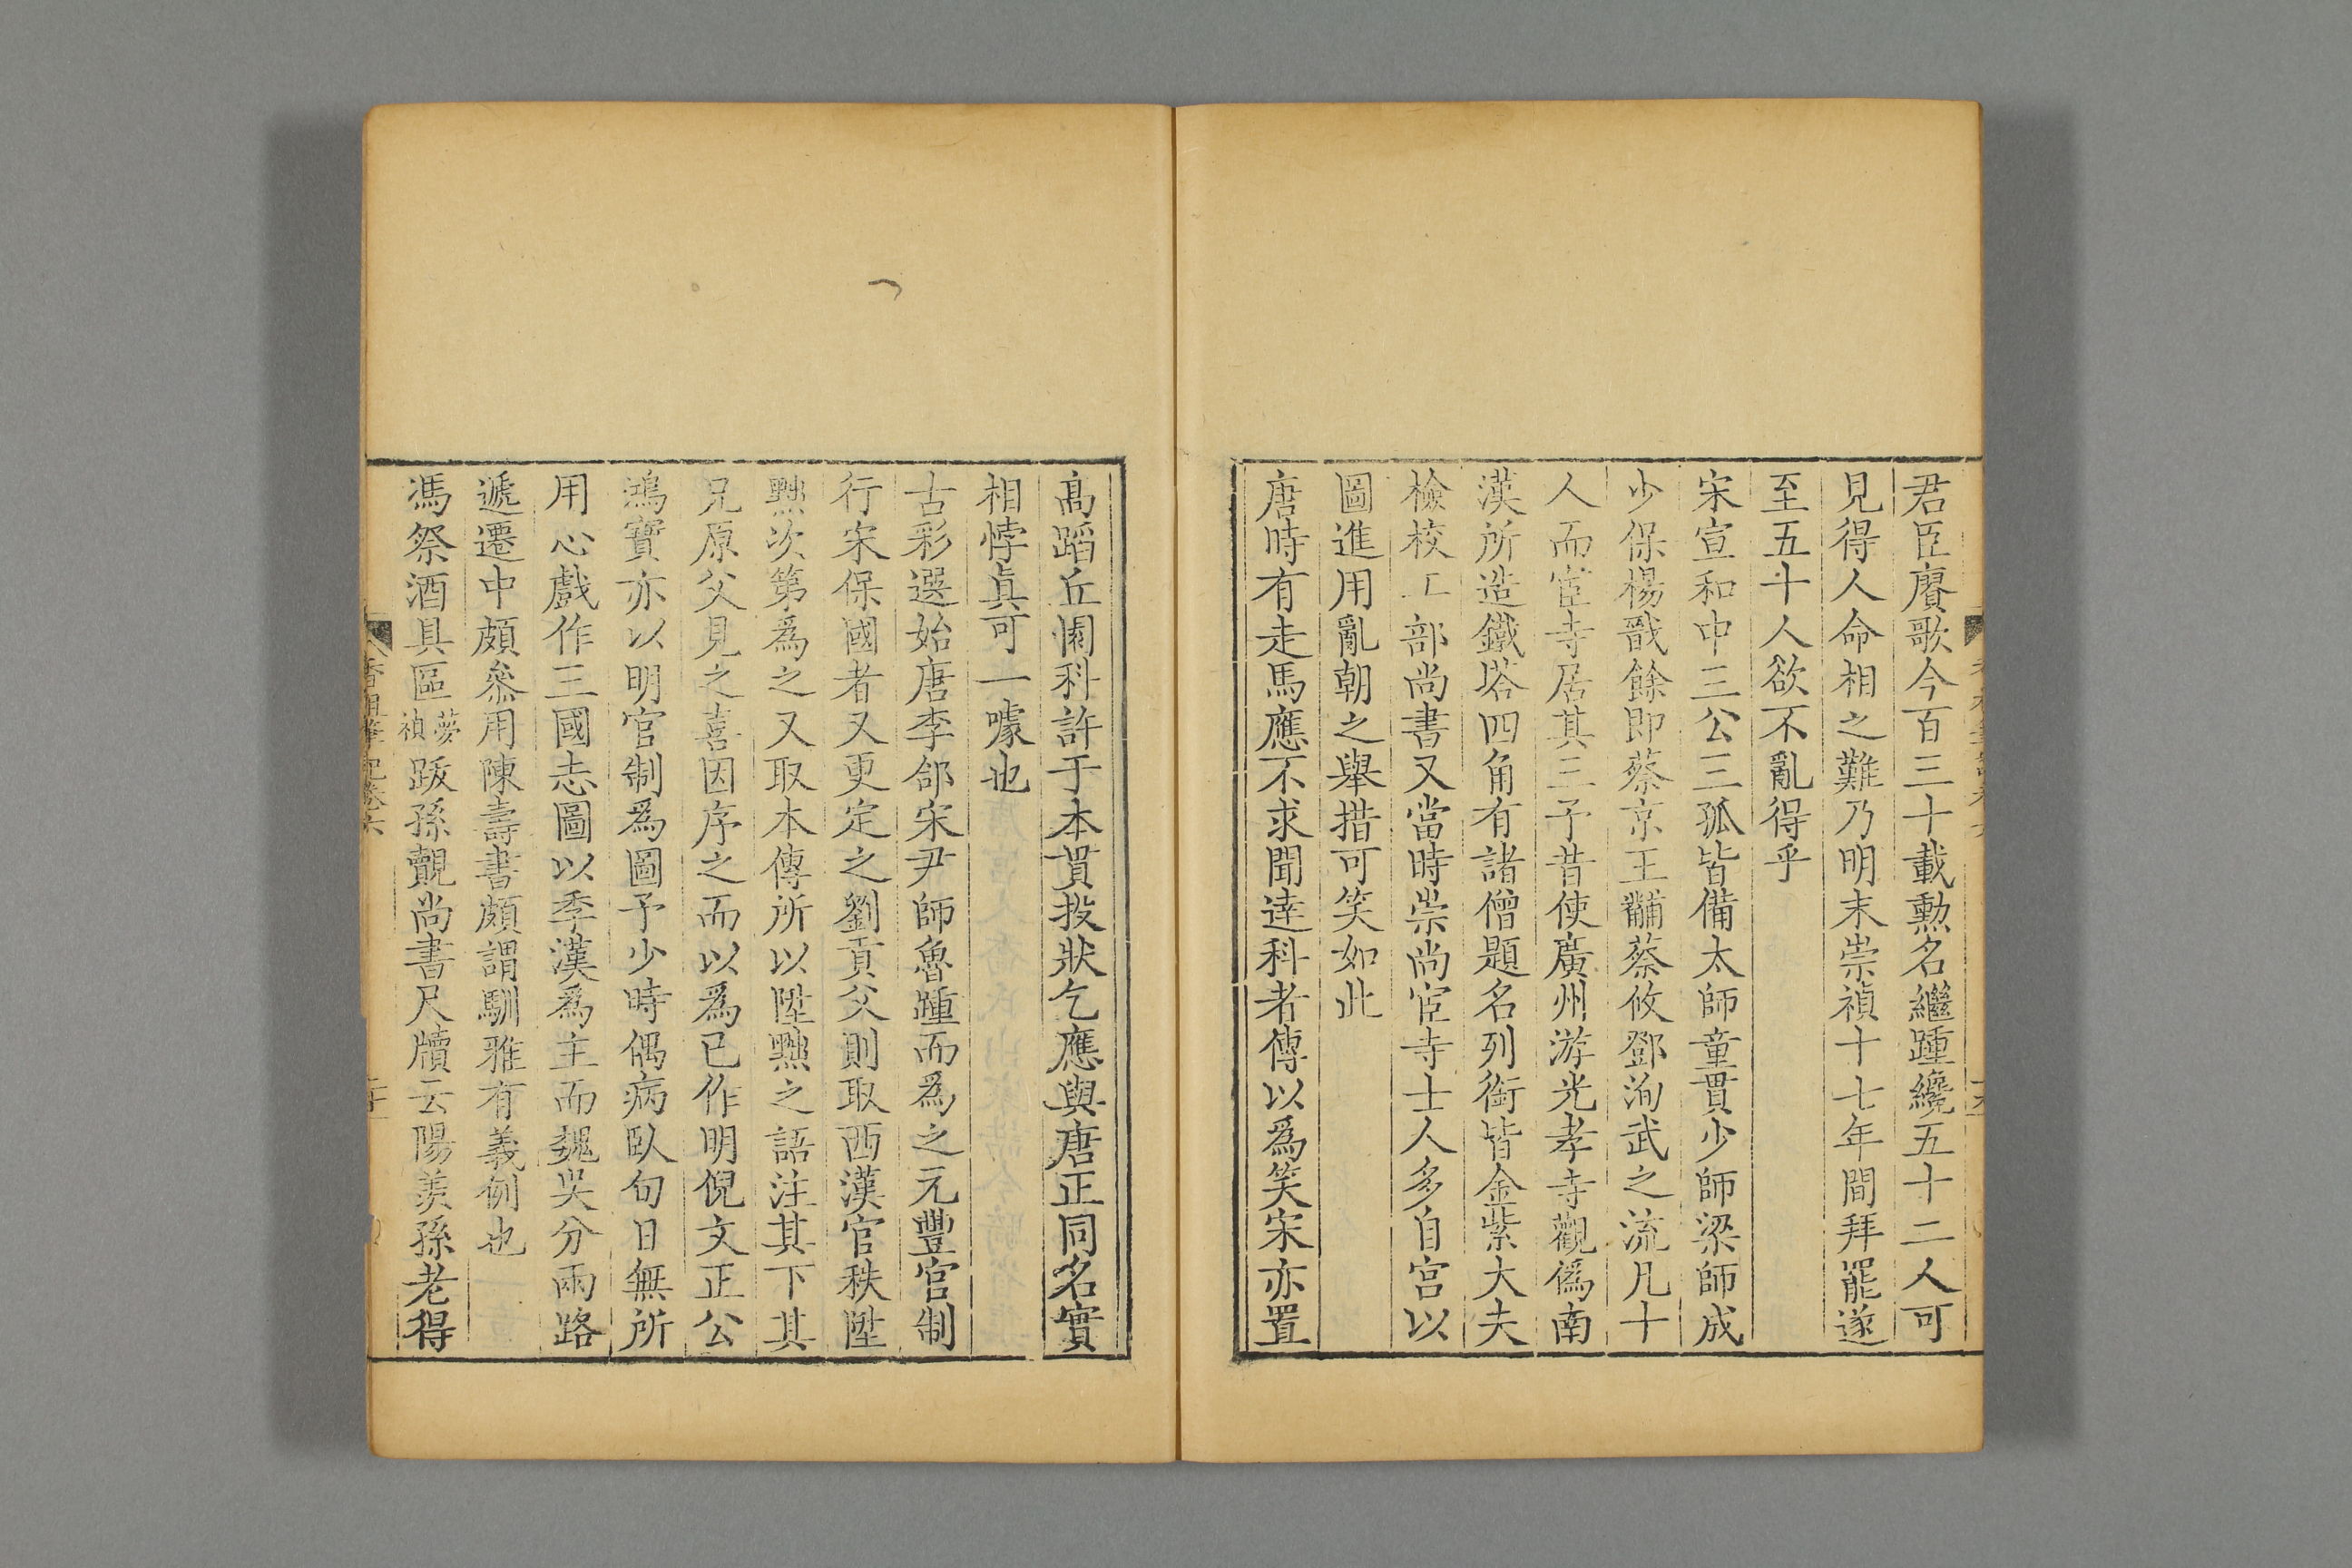 君臣賡歌今百三十載勲名繼踵纔五十二人可
見得人命相之難乃明末崇禎十七年間拜罷遂
至五十人欲不亂得乎
宋宣和中三公三孤皆備太師童貫少師梁師成
少保楊戩餘即蔡京王黼蔡攸鄧洵武之流凡十
人而宦寺居其三予昔使廣州游光孝寺觀僞南
漢所造鐵塔四角有諸僧題名列銜皆金紫大夫
檢校工部尚書又當時崇尚宦寺士人多自宮以
圖進用亂朝之舉措可笑如此
唐時有走馬應不求聞達科者傳以爲笑宋亦置
髙蹈丘園科許于本貫投狀乞應與唐正同名實
相悖眞可一噱也
古彩選始唐李郃宋尹師魯踵而爲之元豐官制
行宋保國者又更定之劉貢父則取西漢官秩陞
黜次第爲之又取本傳所以陞黜之語注其下其
兄原父見之喜因序之而以爲已作明倪文正公
鴻寶亦以明官制爲圖予少時偶病臥旬日無所
用心戲作三國志圖以季漢爲主而魏吴分兩路
遞遷中頗叅用陳壽書頗謂馴雅有義例也
馮祭酒具區夢禎跋孫覿尚書尺牘云陽羨孫老得
香祖筆記卷六